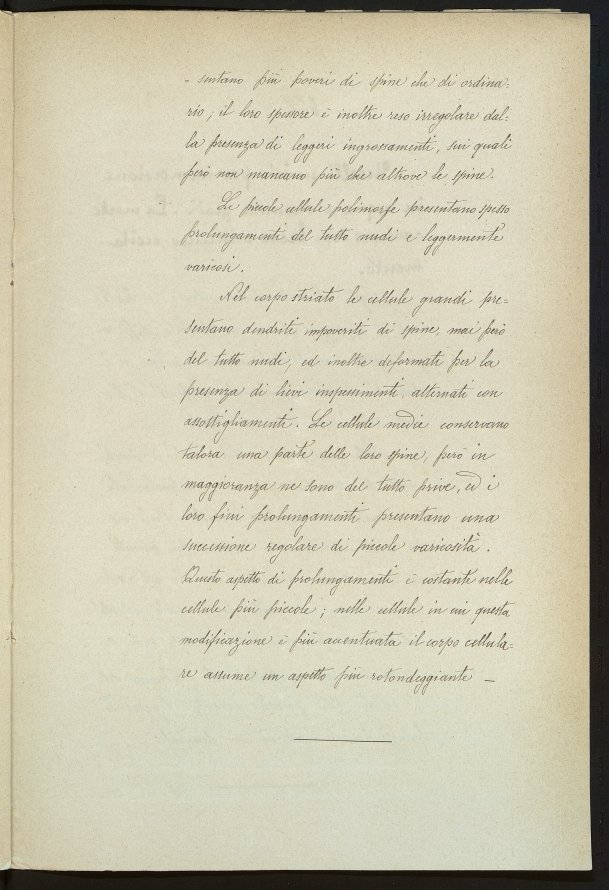 - sentano più poveri di spine che di ordina=
rio; il loro spessore è inoltre reso irregolare dal=
la presenza di leggeri ingrossamenti, sui quali
però non mancano più che altrove le spine.
Le piccole cellule polimorfe presentano spesso
prolungamenti del tutto nudi e leggermente
varicosi.
Nel corpo striato le cellule grandi pre=
sentano dendriti impoveriti di spine, mai però
del tutto nudi, ed inoltre deformati per la
presenza di lievi inspessimenti, alternati con
assottigliamenti. Le cellule medie conservano
talora una parte delle loro spine, però in
maggioranza ne sono del tutto prive, ed i
loro fini prolungamenti presentano una
successione regolare di piccole varicosità.
Questo aspetto di prolungamenti è costante nelle
cellule più piccole; nelle cellule in cui questa
modificazione è più accentuata il corpo cellula=
re assume un aspetto più rotondeggiante —